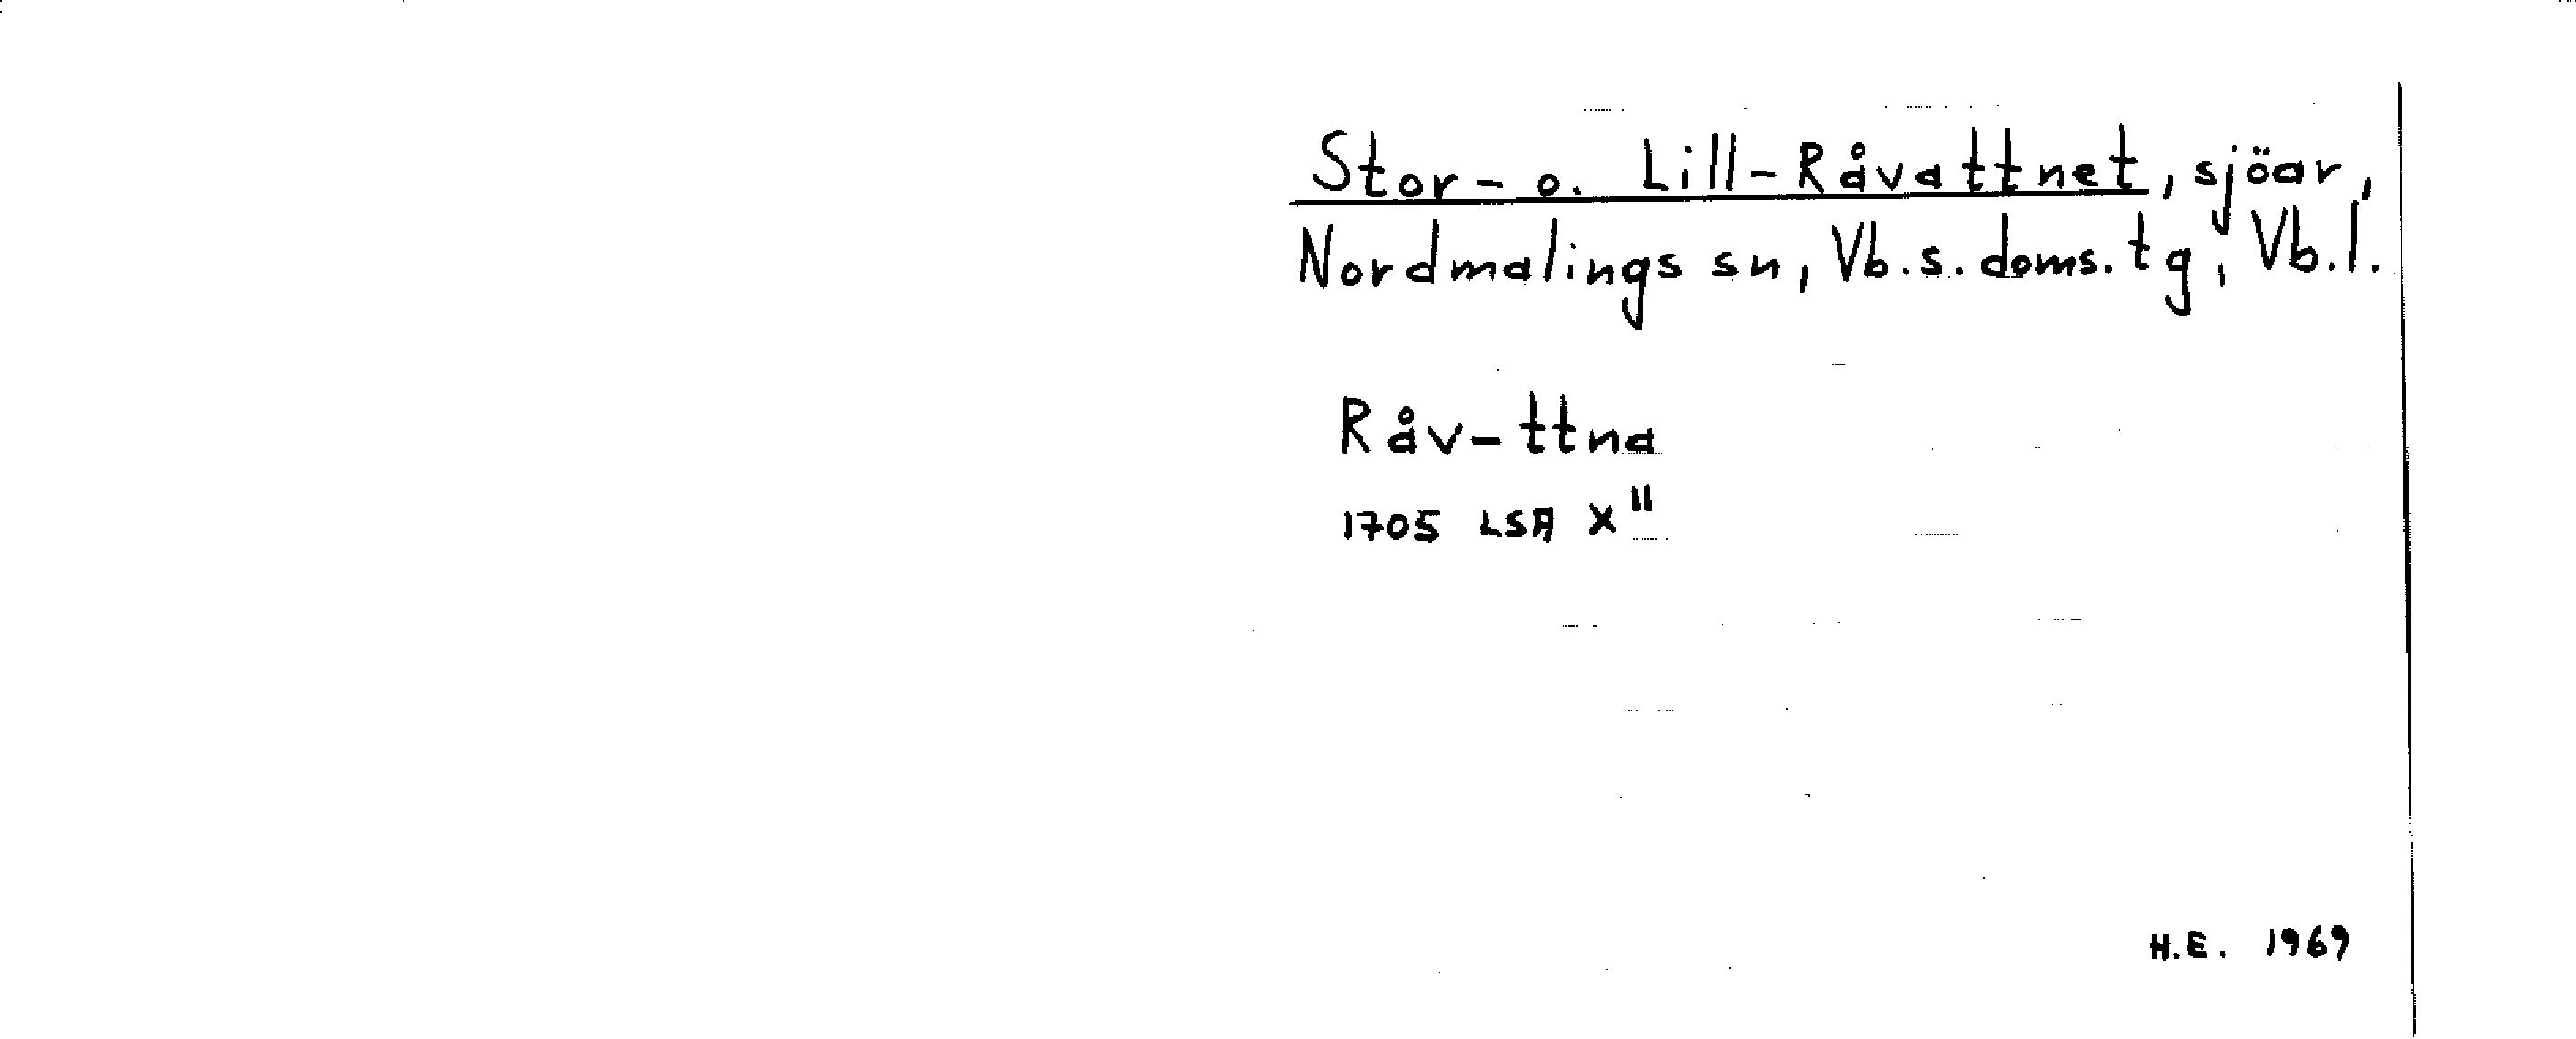 Stor- o. Lill-Råvattnet, sjöar,
Nordmalings sn, Vb.s.doms.tg, Vb.l.
Råv-ttna
1705 LSA X"
H.E. 1969